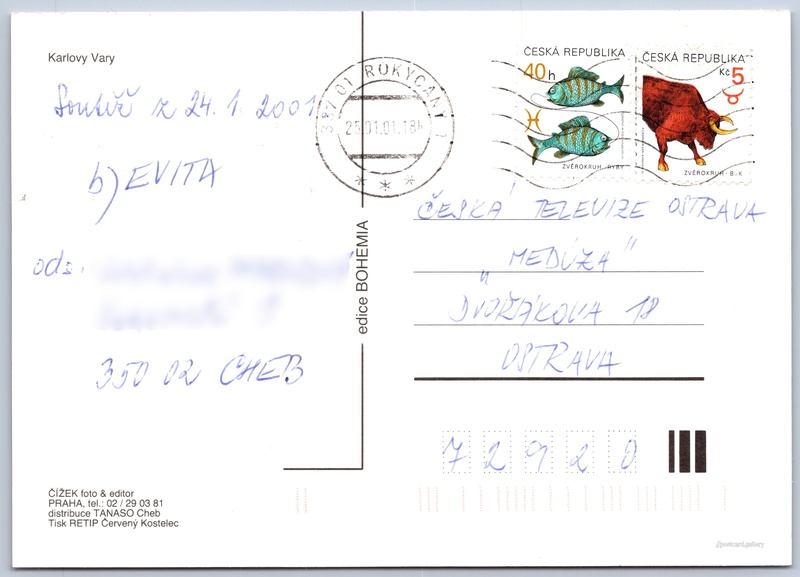 Karlovy Vary
Soutěž z 24.1.2001
b) EVITA
ods.
350 02 CHEB
ČÍŽEK foto & editor
PRAHA, tel.: 02 / 29 03 81
distribuce TANASO Cheb
Tisk RETIP Červený Kostelec
edice BOHEMIA
337 01 ROKYCANY 1
25.01.01.18
ČESKÁ REPUBLIKA
40 h
ZVĚROKRUH - RYBY
ČESKÁ REPUBLIKA
Kč 5
ZVĚROKRUH - BÝK
ČESKÁ TELEVIZE OSTRAVA
„MEDÚZA"
DVOŘÁKOVA 18
OSTRAVA
72920
//postcard.gallery